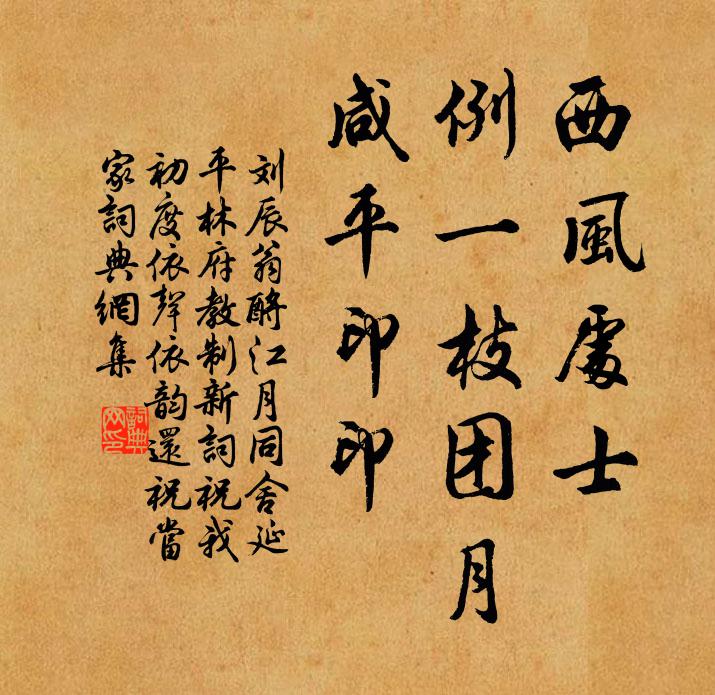 西風處士
例一枝团月
咸平印印
刘辰翁酹江月同舍延
平林府教制新詞祝我
初度依聲依韵還祝當
家詞典網集
詞典网印